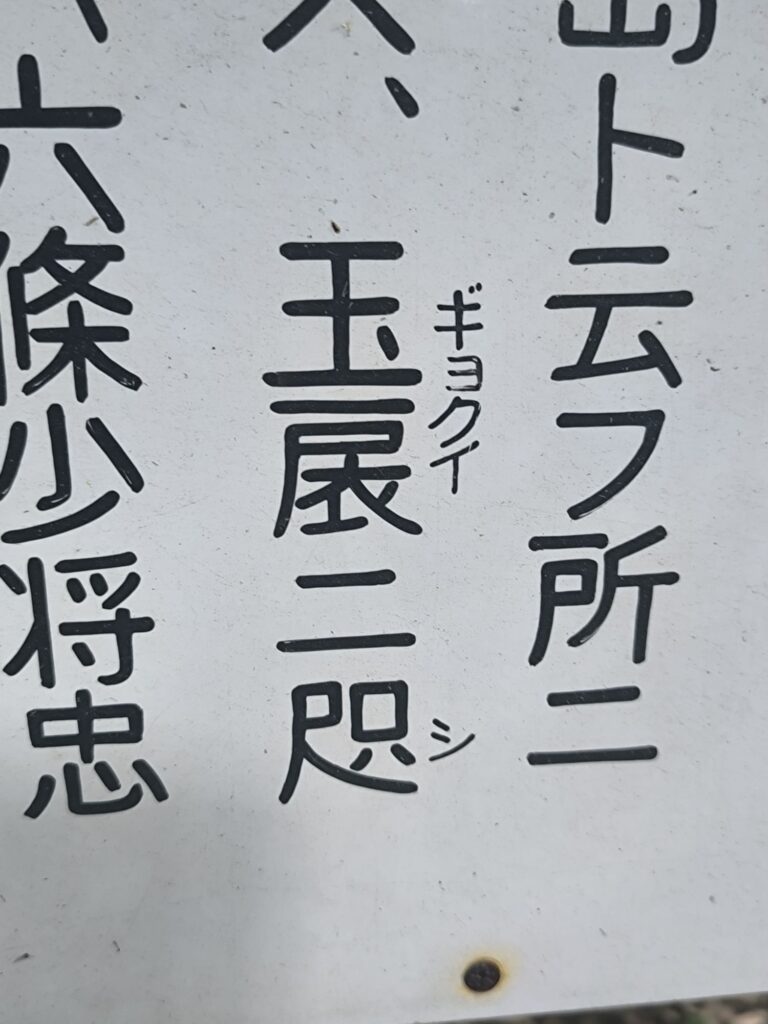 島ト云フ所ニ
、玉扆ニ咫
ギョクイ
シ
六條少将忠